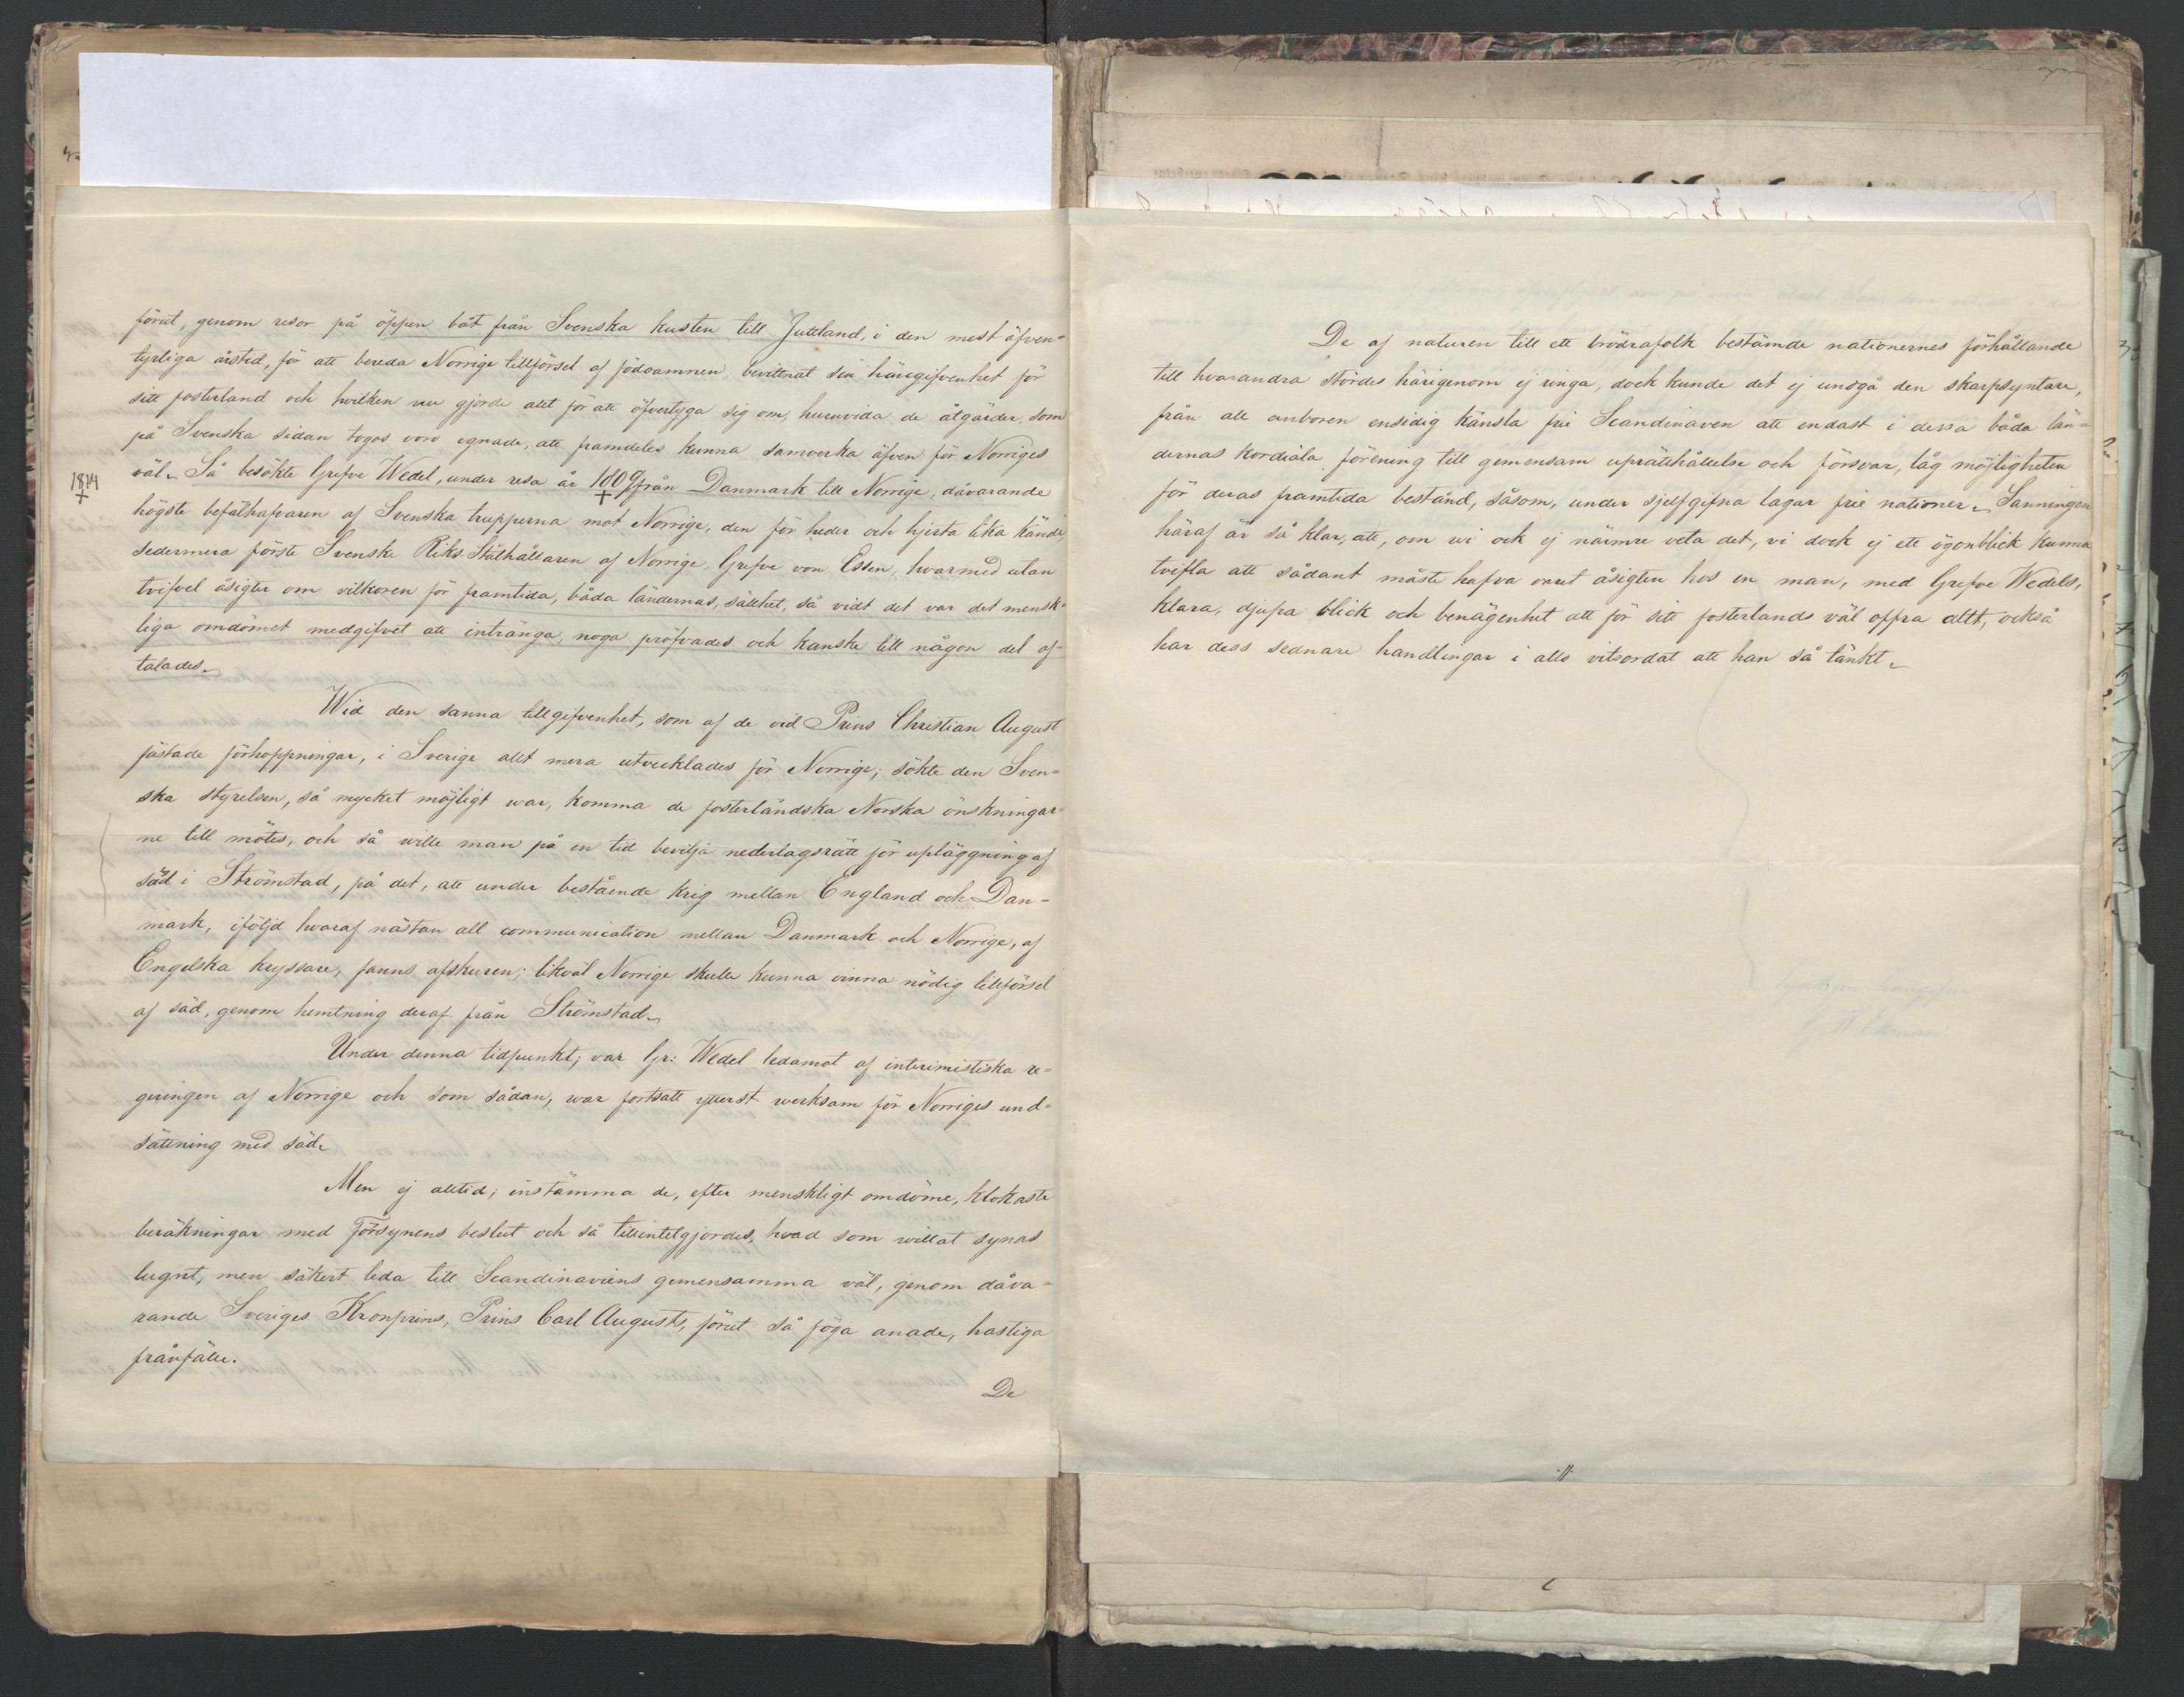 förut, genom resor på öppen båt från Svenska kusten till Jutland, i den mest äfven=
tyrliga årstid, för att bereda Norrige tillförsel af födoämnen, bevittnat sin hängifvenhet för
sitt fosterland och hvilken nu gjorde allt för att öfvertyga sig om, huruvida de åtgärder, som
på Svenska sidan togos voro egnade, att framdeles kunna samverka äfven för Norriges
väl. Så besökte Grefve Wedel, under resa år 1809 från Danmark till Norrige, dåvarande
1814
högste befälhafvaren af Svenska trupperna mot Norrige, den för heder och hjerta lika kände
sedermera förste Svenske Riks Ståthållaren af Norrige, Grefve von Essen, hvarmed utan
tvifvel åsigter om vilkoren för framtida, båda ländernas, sällhet, så vidt det var det mensk=
liga omdömet medgifvet att intränga, noga pröfvades och kanske till någon del af=
talades.
Wid den sanna tillgifvenhet, som af de vid Prins Christian August
fästade förhoppningar, i Sverige allt mera utvecklades för Norrige; sökte den Sven=
ska styrelsen, så mycket möjligt war, komma de fosterländska Norska önskningar=
ne till mötes, och så wille man på en tid bevilja nederlagsrätt för upläggning af
säd i Strömstad, på det, att under bestående krig mellan England och Dan=
mark, iföljd hvaraf nästan all communication mellan Danmark och Norrige, af
Engelska kryssare, fanns afskuren; likväl Norrige skulle kunna vinna nödig tillförsel
af säd, genom hemtning deraf från Strömstad.
Under denna tidpunkt; var Gr: Wedel ledamot af interimistiska re=
geringen af Norrige och som sådan, war fortsatt ytterst werksam för Norriges und=
sättning med säd.
Men ej alltid; instämma de, efter menskligt omdöme, klokaste
beräkningar med Försynens beslut och så tillintetgjordes, hvad som willat synas
lugnt, men säkert leda till Scandinaviens gemensamma väl, genom dåva=
rande Sveriges Kronprins, Prins Carl Augusts, förut så föga anade, hastiga
frånfälle.
De
De af naturen till ett brödrafolk bestämde nationernes förhållande
till hvarandra stördes härigenom ej ringa, dock kunde det ej undgå den skarpsyntare,
från all anboren ensidig känsla frie Scandinaven att endast i dessa båda län=
dernas kordiala förening till gemensam uprätthållelse och försvar, låg möjligheten
för deras framtida bestånd, såsom, under sjelfgifna lagar frie nationer. Sanningen
häraf är så klar, att, om wi ock ej närmre veta det, vi dock ej ett ögonblick kunna
tvifla att sådant måste hafva varit åsigten hos en man, med Grefve Wedels,
klara, djupa blick och benägenhet att för sitt fosterlands väl offra allt, också
har dess sednare handlingar i allo vitsordat att han så tänkt.